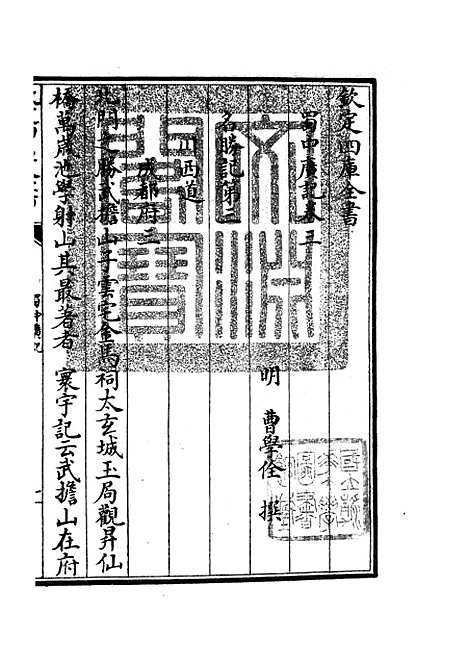 欽定四庫全書
蜀中廣記卷三
明 曹學佺 撰
名勝記第三
川西道
成都府三
北門之勝武擔山子雲宅金馬祠太玄城玉局觀昇仙
橋萬歲池學射山其最著者 寰宇記云武擔山在府
蜀中廣記